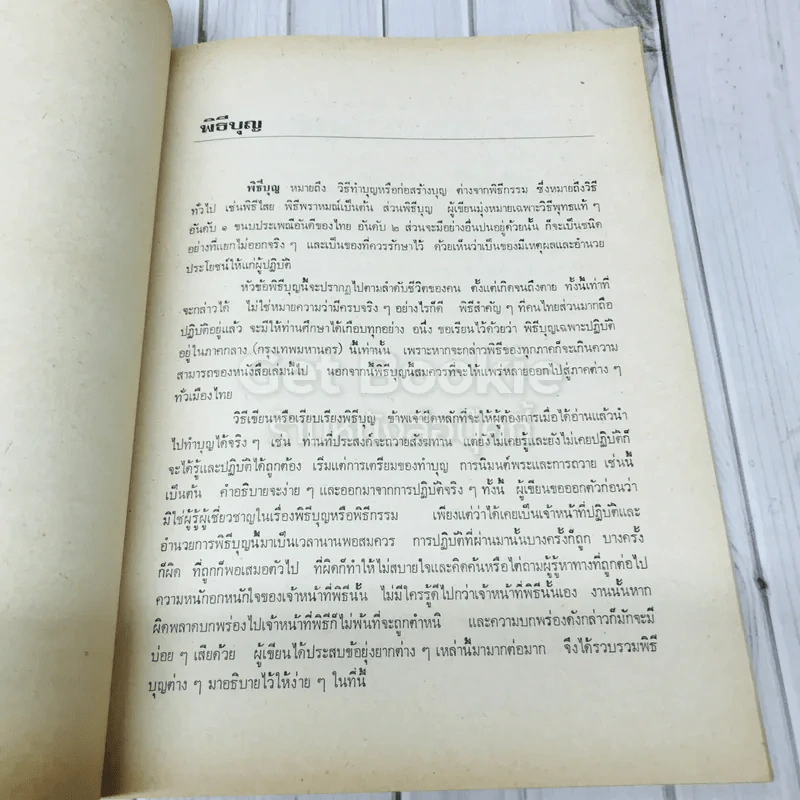 พิธีบุญ
พิธีบุญ หมายถึง วิธีทำบุญหรือก่อสร้างบุญ ต่างจากพิธีกรรม ซึ่งหมายถึงวิธี
ทั่วไป เช่นพิธีไสย พิธีพราหมณ์เป็นต้น ส่วนพิธีบุญ ผู้เขียนมุ่งหมายเฉพาะวิธีพุทธแท้ ๆ
อันดับ ๑ ขนบประเพณีอันดีของไทย อันดับ ๒ ส่วนจะมีอย่างอื่นปนอยู่ด้วยนั้น ก็จะเป็นชนิด
อย่างที่แยกไม่ออกจริง ๆ และเป็นของที่ควรรักษาไว้ ด้วยเห็นว่าเป็นของมีเหตุผลและอำนวย
ประโยชน์ให้แก่ผู้ปฏิบัติ
หัวข้อพิธีบุญนี้จะปรากฏไปตามลำดับชีวิตของคน ตั้งแต่เกิดจนถึงตาย ทั้งนี้เท่าที่
จะกล่าวได้ ไม่ใช่หมายความว่ามีครบจริง ๆ อย่างไรก็ดี พิธีสำคัญ ๆ ที่คนไทยส่วนมากถือ
ปฏิบัติอยู่แล้ว จะมีให้ท่านศึกษาได้เกือบทุกอย่าง อนึ่ง ขอเรียนไว้ด้วยว่า พิธีบุญเฉพาะปฏิบัติ
อยู่ในภาคกลาง (กรุงเทพมหานคร) นี้เท่านั้น เพราะหากจะกล่าวพิธีของทุกภาคก็จะเกินความ
สามารถของหนังสือเล่มนี้ไป นอกจากนี้พิธีบุญนี้สมควรที่จะให้แพร่หลายออกไปสู่ภาคต่าง ๆ
ทั่วเมืองไทย
Get Bookie
วิธีเขียนหรือเรียบเรียงพิธีบุญ ข้าพเจ้ายึดหลักที่จะให้ผู้ต้องการเมื่อได้อ่านแล้วนำ
ไปทำบุญได้จริง ๆ เช่น ท่านที่ประสงค์จะถวายสังฆทาน แต่ยังไม่เคยรู้และยังไม่เคยปฏิบัติก็
จะได้รู้และปฏิบัติได้ถูกต้อง เริ่มแต่การเตรียมของทำบุญ การนิมนต์พระและการถวาย เช่นนี้
เป็นต้น คำอธิบายจะง่าย ๆ และออกมาจากการปฏิบัติจริง ๆ ทั้งนี้ ผู้เขียนขอออกตัวก่อนว่า
มิใช่ผู้รู้ผู้เชี่ยวชาญในเรื่องพิธีบุญหรือพิธีกรรม เพียงแต่ว่าได้เคยเป็นเจ้าหน้าที่ปฏิบัติและ
อำนวยการพิธีบุญนี้มาเป็นเวลานานพอสมควร การปฏิบัติที่ผ่านมานั้นบางครั้งก็ถูก บางครั้ง
ก็ผิด ที่ถูกก็พอเสมอตัวไป ที่ผิดก็ทำให้ไม่สบายใจและคิดค้นหรือไต่ถามผู้รู้หาทางที่ถูกต่อไป
ความหนักอกหนักใจของเจ้าหน้าที่พิธีนั้น ไม่มีใครรู้ดีไปกว่าเจ้าหน้าที่พิธีนั้นเอง งานนั้นหาก
ผิดพลาดบกพร่องไปเจ้าหน้าที่พิธีก็ไม่พ้นที่จะถูกตำหนิ และความบกพร่องดังกล่าวก็มักจะมี
บ่อย ๆ เสียด้วย ผู้เขียนได้ประสบข้อยุ่งยากต่าง ๆ เหล่านี้มามากต่อมาก จึงได้รวบรวมพิธี
บุญต่าง ๆ มาอธิบายไว้ให้ง่าย ๆ ในที่นี้